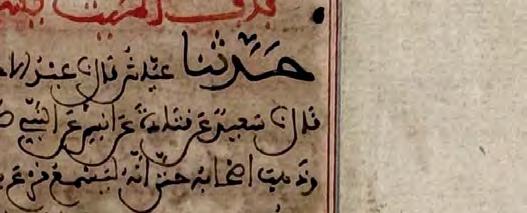 الميت
حدثنا عياش قال عبد
قال سعيد عن قتادة عن انس عن النبي
وذهب اصحابه حتى انه ليسمع قرع